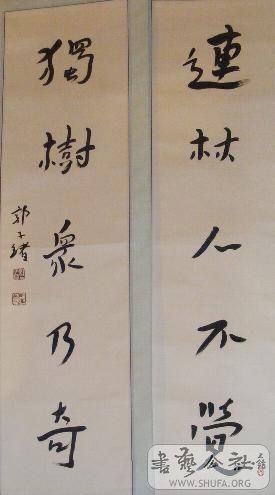 連林人不覺
獨樹眾乃奇
郭子緒
書藝公社
WWW.SHUFA.ORG